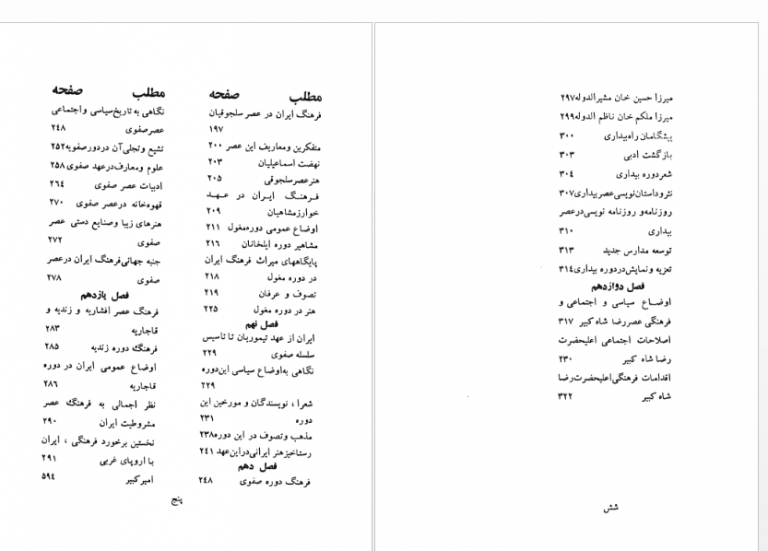 مطلب صفحه
فرهنگ ایران در عصر سلجوقیان
۱۹۷
متفکرین ومعاریف این عصر ۲۰۰
نهضت اسماعیلیان ۲۰۳
هنرعصرسلجوقی ۲۰۵
فرهنگ ایران در عهد
خوارزمشاهیان ۲۰۹
اوضاع عمومی دوره‌مغول ۲۱۱
مشاهیر دوره ایلخانان ۲۱۶
پایگاههای میراث فرهنگ ایران
در دوره مغول ۲۱۸
تصوف و عرفان ۲۱۹
هنر در دوره مغول ۲۲۵
فصل نهم
ایران از عهد تیموریان تا تاسیس
سلسله صفوی ۲۲۹
نگاهی به‌اوضاع سیاسی این‌دوره
۲۲۹
شعرا ، نویسندگان و مورخین این
دوره ۲۳۱
مذهب وتصوف در این دوره۲۳۸
رستاخیزهنر ایرانی‌دراین‌عهد ۲۴۱
فصل دهم
فرهنگ دوره صفوی ۲۴۸
مطلب صفحه
نگاهی به تاریخ‌سیاسی واجتماعی
عصرصفوی ۲۴۸
تشیع وتجلی‌آن دردورصفویه۲۵۲
علوم ومعارف‌درعهد صفوی۲۵۸
ادبیات عصر صفوی ۲۶۴
قهوه‌خانه در‌عصر صفوی ۲۷۰
هنرهای زیبا وصنایع دستی عصر
صفوی ۲۷۲
جنبه جهانی‌فرهنگ ایران درعصر
صفوی ۲۷۸
فصل یازدهم
فرهنگ عصر افشاریه و زندیه و
قاجاریه ۲۸۳
فرهنگ دوره زندیه ۲۸۵
اوضاع عمومی ایران در دوره
قاجاریه ۲۸۶
نظر اجمالی به فرهنگ عصر
مشروطیت ایران ۲۹۰
نخستین برخورد فرهنگی ، ایران
با اروپای غربی ۲۹۱
امیرکبیر ۵۹۴
پنج
میرزا حسین خان مشیرالدوله۲۹۷
میرزا ملکم خان ناظم الدوله۲۹۹
پیشگامان راه‌بیداری ۳۰۰
بازگشت ادبی ۳۰۳
شعردوره بیداری ۳۰۴
نثروداستان‌نویسی‌عصربیداری۳۰۷
روزنامه‌و روزنامه نویسی‌درعصر
بیداری ۳۱۰
توسعه مدارس جدید ۳۱۳
تعزیه ونمایش‌دردوره بیداری۳۱۴
فصل دوازدهم
اوضاع سیاسی و اجتماعی و
فرهنگی عصررضا شاه‌کبیر ۳۱۷
اصلاحات اجتماعی اعلیحضرت
رضا شاه کبیر ۲۳۰
اقدامات فرهنگی‌اعلیحضرت‌رضا
شاه کبیر ۳۲۲
شش